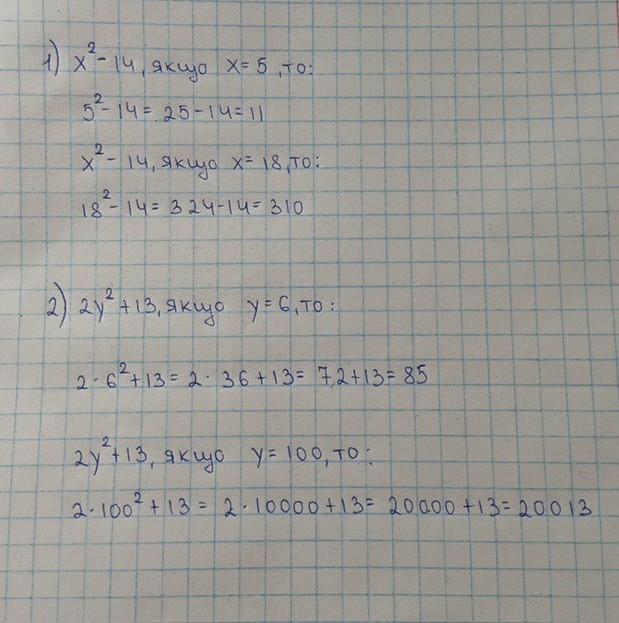 1) x² - 14, якщо x = 5, то:
5² - 14 = 25 - 14 = 11
x² - 14, якщо x = 18, то:
18² - 14 = 324 - 14 = 310
2) 2y² + 13, якщо y = 6, то:
2 · 6² + 13 = 2 · 36 + 13 = 72 + 13 = 85
2y² + 13, якщо y = 100, то:
2 · 100² + 13 = 2 · 10000 + 13 = 20000 + 13 = 20013